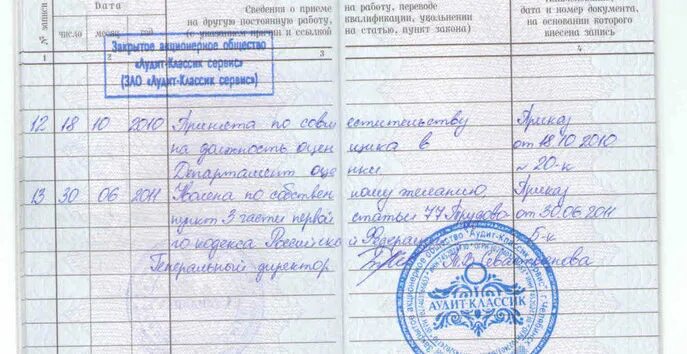 № записи
Дата
Сведения о приеме на работу, переводе
на другую постоянную работу, квалификации, увольнении
(с указанием причин и ссылкой на статью, пункт закона)
дата и номер документа,
на основании которого
внесена запись
число
1 2 3 4
Закрытое акционерное общество
«Аудит-Классик сервис»
(ЗАО «Аудит-Классик сервис»)
12 18 10 2010 Принята по совместительству Приказ
на должность оценщика в от 18.10.2010
Департамент оценки № 20-к
13 30 06 2011 Уволена по собственному желанию, Приказ
пункт 3 части первой статьи 77 Трудово от 30.06.2011
го кодекса Российской Федерации 5-к
Генеральный директор
АУДИТ-КЛАССИК